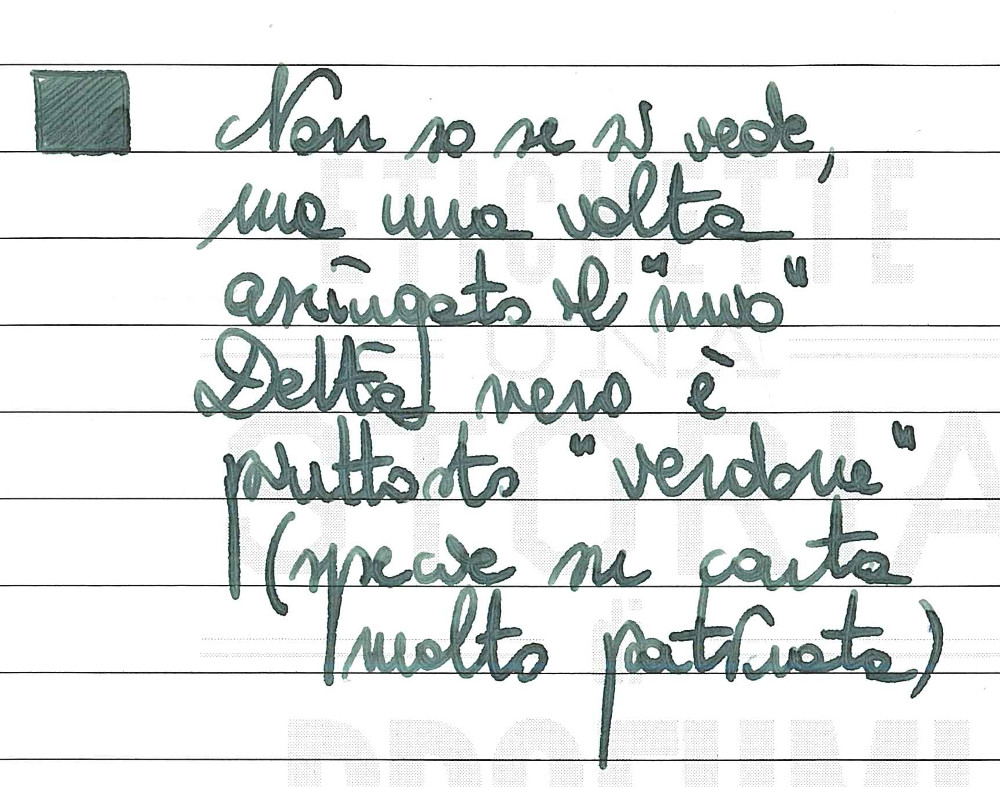 Non so se si vede,
ma una volta
asciugato il "mio"
Delta nero è
piuttosto "verdone"
(specie su carta
molto patinata)
ETICHETTE
UNA
STORIA
di
PROFUMI